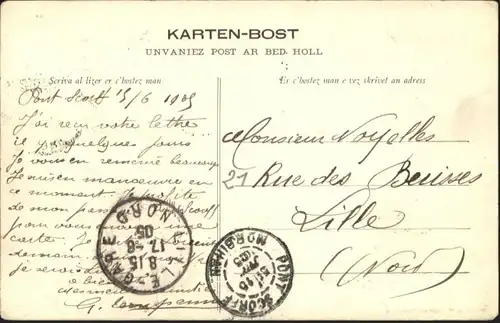 KARTEN-BOST
UNVANIEZ POST AR BED. HOLL
Scriva al lizer er c'hostez man
Er c'hostez man e vez skrivet an adress
Pont Scorff 15/6 1905
J'ai reçu votre lettre
il y a quelques jours
Je vous en remercie beaucoup
Je suis en manœuvre en
ce moment. Je profite
de mon Scorff
pour vous une
carte. Je
demain
je serai
a bien
G.
Monsieur Noyelles
21 Rue des Buisses
Lille
(Nord)
LILLE-GARE
8.15
17-6
05
NORD
PONT SCORFF
15 JUIN
05
MORBIHAN